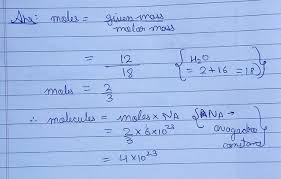 Ans: moles = given mass / molar mass
= 12 / 18 { H2O = 2+16 = 18 }
moles = 2 / 3
∴ molecules = moles × NA { NA → avogadro constant }
= 2/3 × 6 × 10^23
= 4 × 10^23